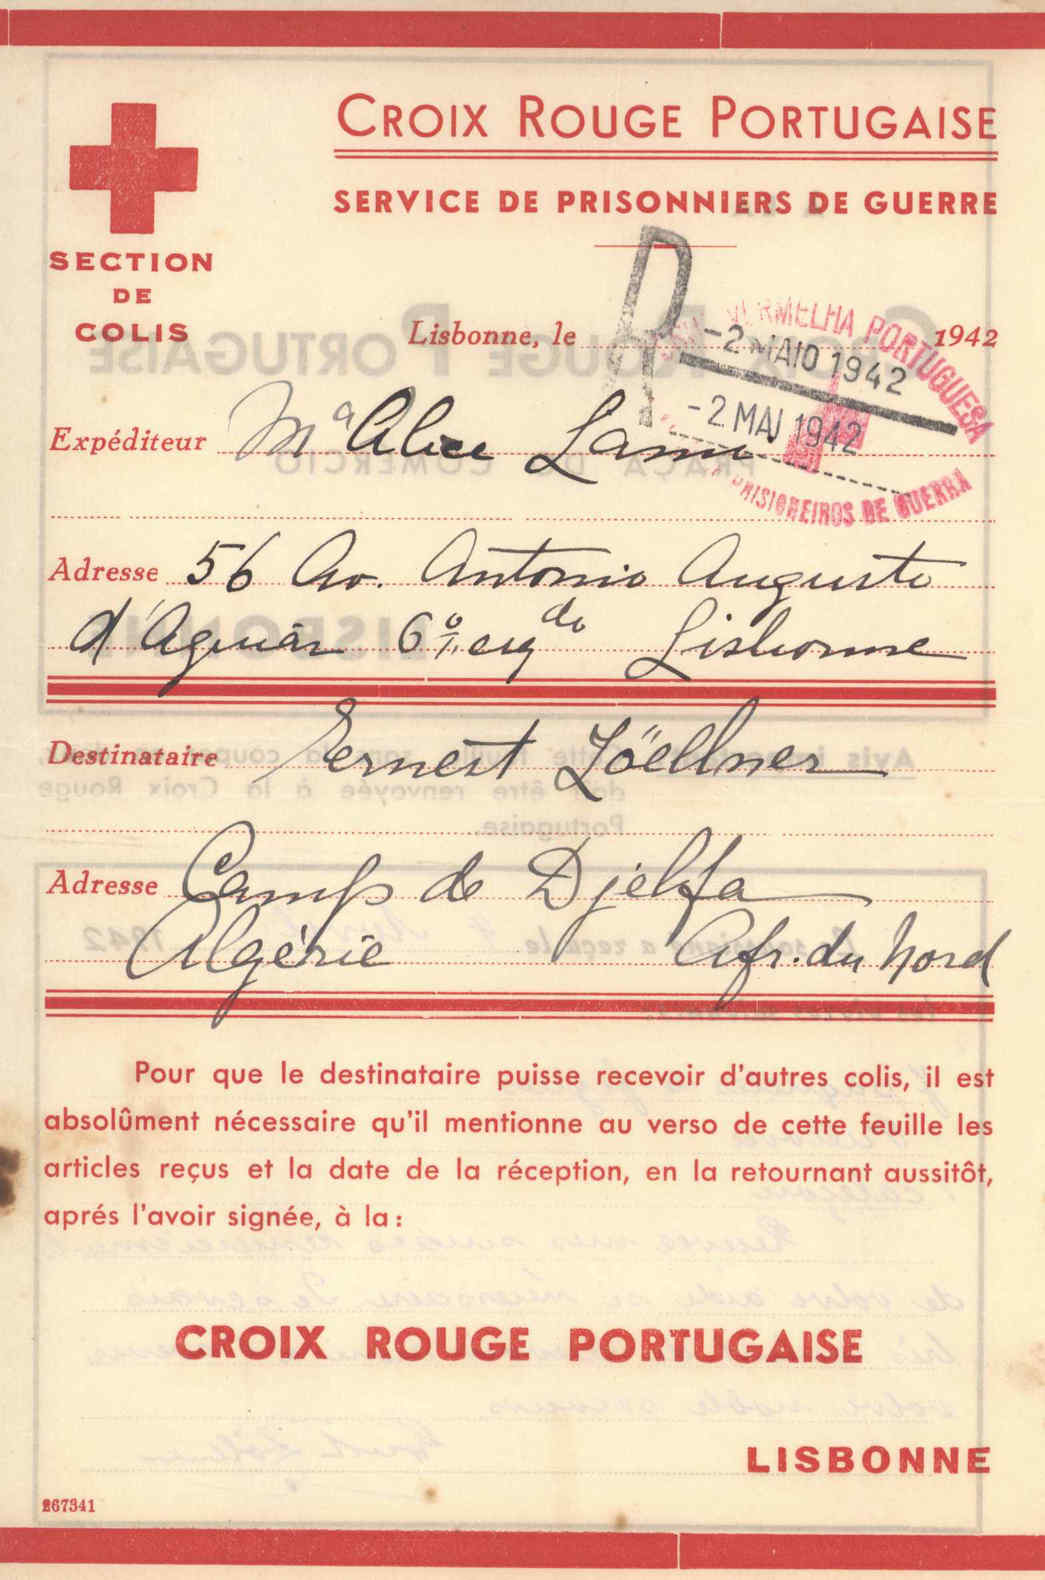 CROIX ROUGE PORTUGAISE
SERVICE DE PRISONNIERS DE GUERRE
SECTION
DE
COLIS
Lisbonne, le 1942
VERMELHA PORTUGUESA
-2 MAIO 1942
-2 MAI 1942
PRISIONEIROS DE GUERRA
Expéditeur Mª Alice
Adresse 56 Av. Antonio Augusto
d'Aguiar 6º/. esq do Lisbonne
Destinataire Ernest Löellner
Adresse Camp de Djelfa
Algérie Afr. du Nord
Pour que le destinataire puisse recevoir d'autres colis, il est
absolûment nécessaire qu'il mentionne au verso de cette feuille les
articles reçus et la date de la réception, en la retournant aussitôt,
aprés l'avoir signée, à la:
CROIX ROUGE PORTUGAISE
LISBONNE
267341